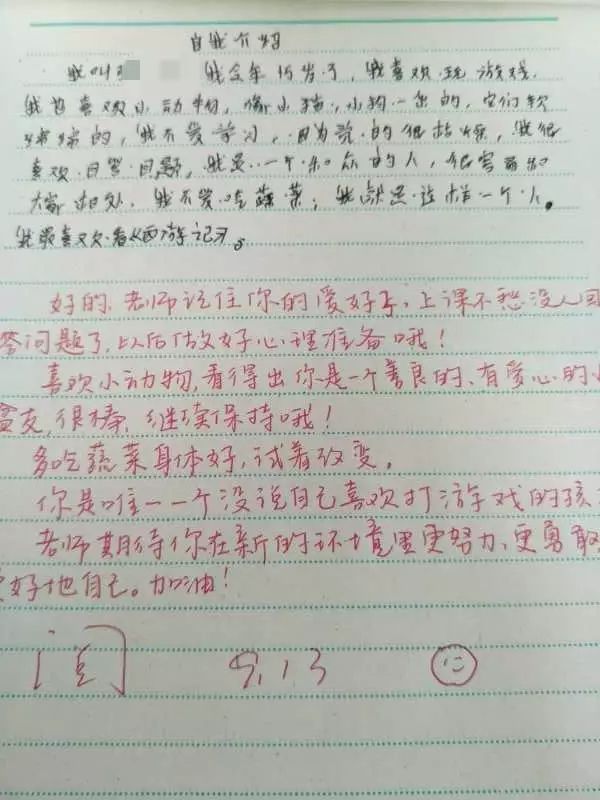 自我介绍
我叫 我今年15岁了,我喜欢玩游戏.
我也喜欢小动物,像小猫,小狗一类的,它们软
绵绵的,我不爱学习,因为说的很枯燥,我很
喜欢回答问题,我是一个和众的人,很容易和
大家相处.我不爱吃蔬菜;我就是这样一个人。
我最喜欢看《西游记》。
好的,老师记住你的爱好了,上课不愁没人回
答问题了,以后做好心理准备哦!
喜欢小动物,看得出你是一个善良的、有爱心的小
朋友,很棒,继续保持哦!
多吃蔬菜身体好,试着改变。
你是唯一一个没说自己喜欢打游戏的孩
老师期待你在新的环境里更努力、更勇敢
好地自己。加油!
阅 9.13